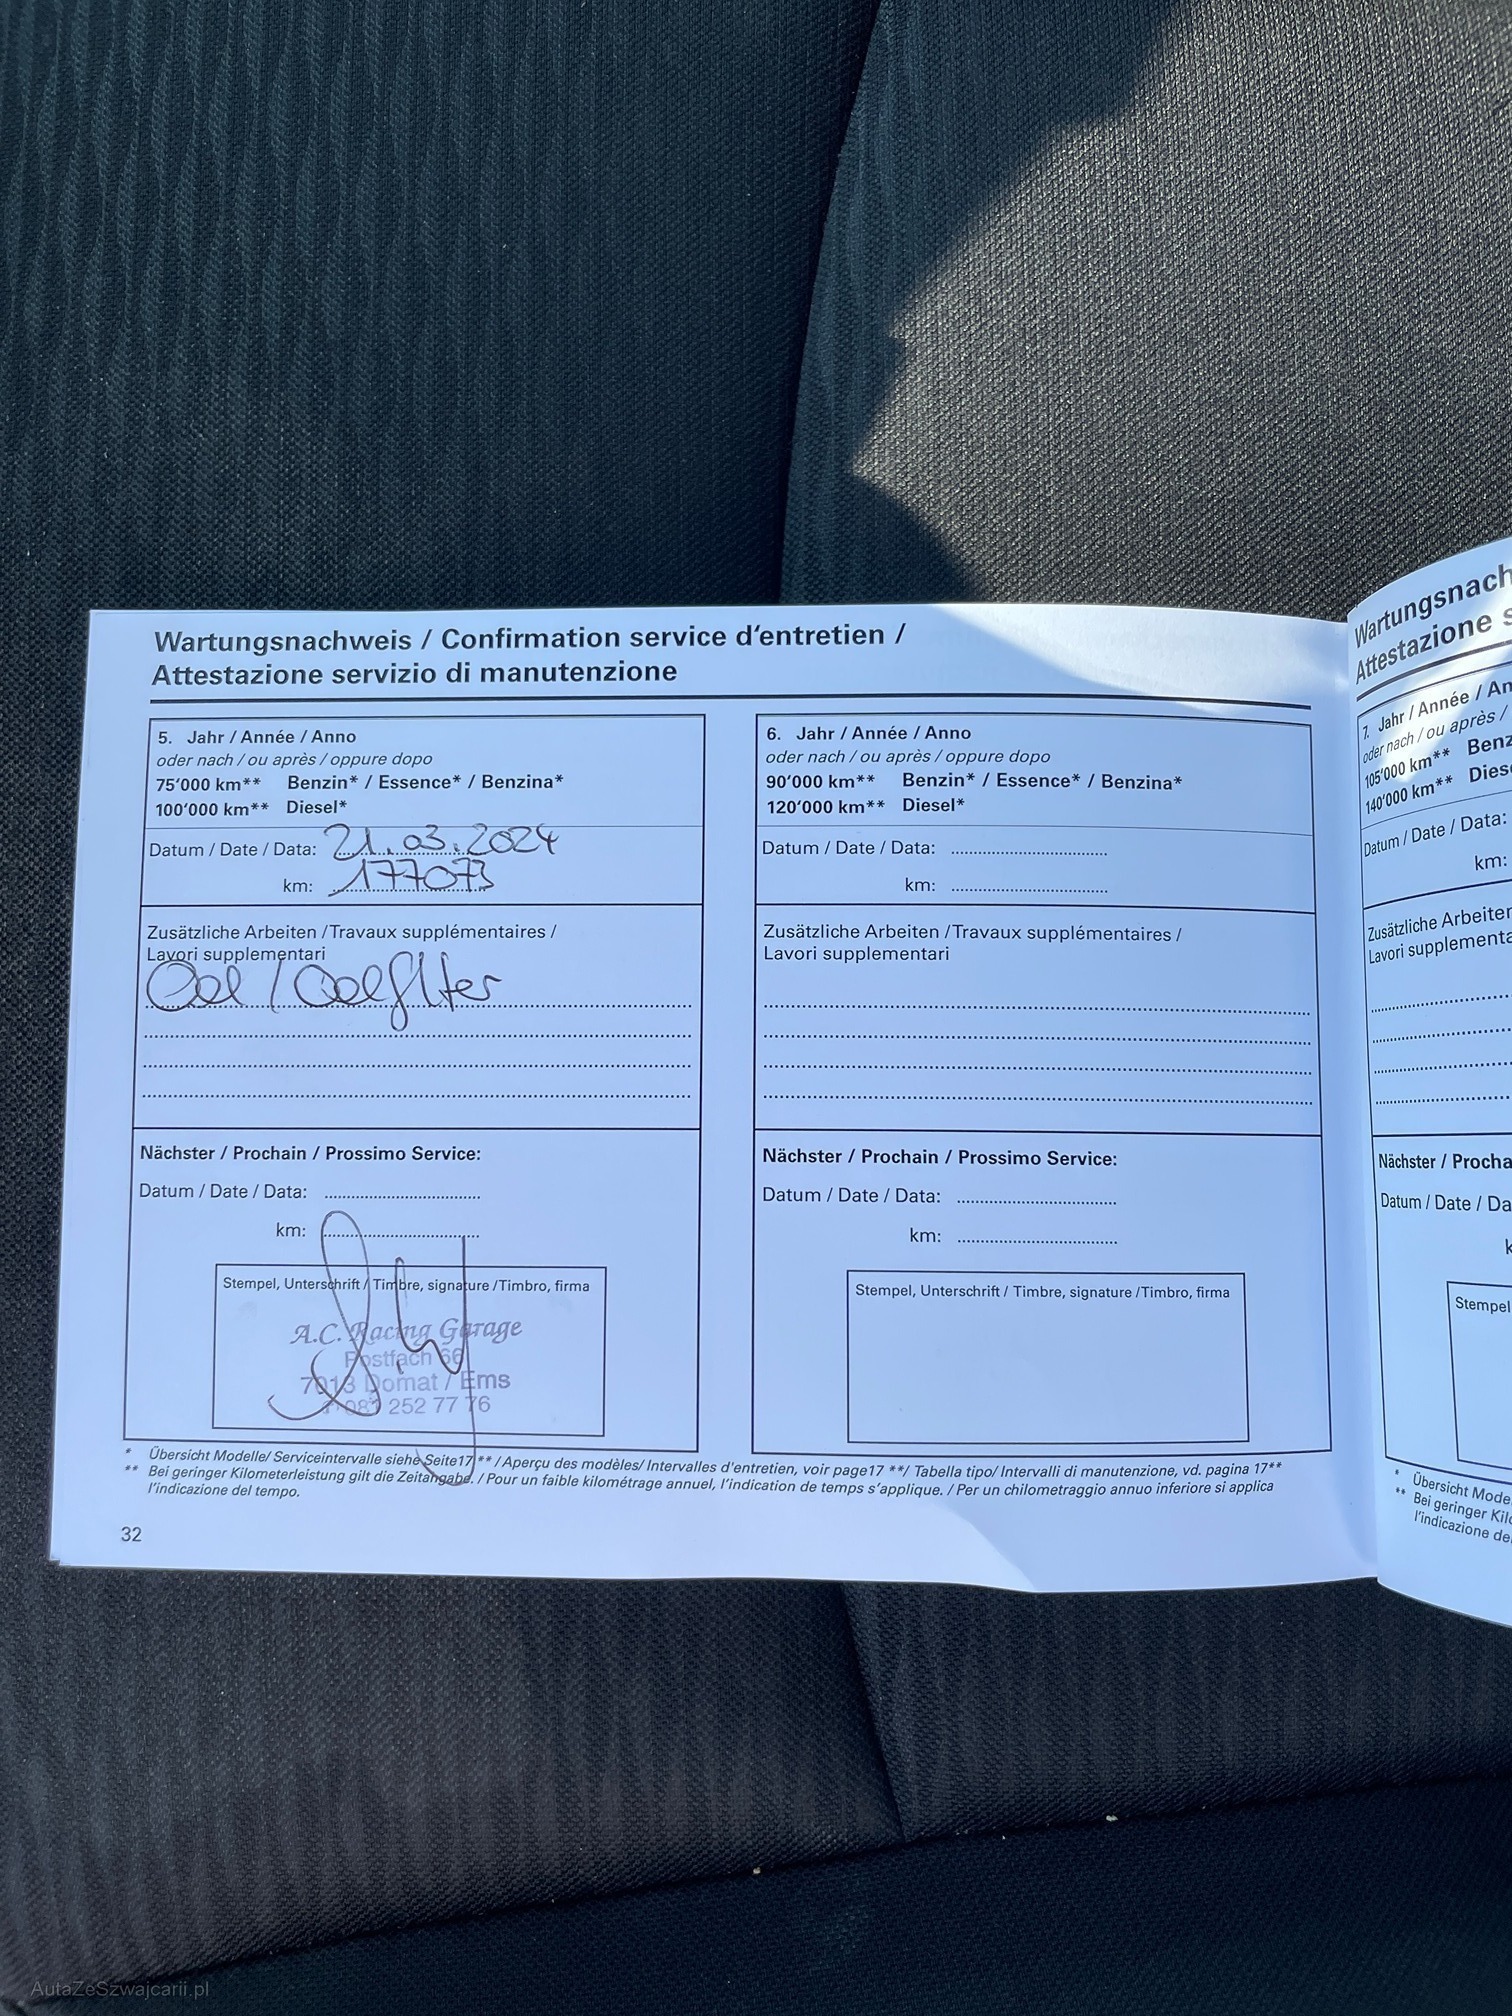 Wartungsnachweis / Confirmation service d'entretien /
Attestazione servizio di manutenzione
5. Jahr / Année / Anno
oder nach / ou après / oppure dopo
75'000 km** Benzin* / Essence* / Benzina*
100'000 km** Diesel*
Datum / Date / Data: 21.03.2024
km: 177073
Zusätzliche Arbeiten / Travaux supplémentaires /
Lavori supplementari
Oel / Oelfilter
Nächster / Prochain / Prossimo Service:
Datum / Date / Data:
km:
Stempel, Unterschrift / Timbre, signature / Timbro, firma
A.C. Racing Garage
Postfach 66
7013 Domat / Ems
081 252 77 76
6. Jahr / Année / Anno
oder nach / ou après / oppure dopo
90'000 km** Benzin* / Essence* / Benzina*
120'000 km** Diesel*
Datum / Date / Data:
km:
Zusätzliche Arbeiten / Travaux supplémentaires /
Lavori supplementari
Nächster / Prochain / Prossimo Service:
Datum / Date / Data:
km:
Stempel, Unterschrift / Timbre, signature / Timbro, firma
* Übersicht Modelle/ Serviceintervalle siehe Seite17 ** / Aperçu des modèles/ Intervalles d'entretien, voir page17 **/ Tabella tipo/ Intervalli di manutenzione, vd. pagina 17**
** Bei geringer Kilometerleistung gilt die Zeitangabe. / Pour un faible kilométrage annuel, l'indication de temps s'applique. / Per un chilometraggio annuo inferiore si applica
l'indicazione del tempo.
32
Wartungsnach
Attestazione s
7. Jahr / Année / An
oder nach / ou après /
105'000 km** Benz
140'000 km** Dies
Datum / Date / Data:
km:
Zusätzliche Arbeiten
Lavori supplementa
Nächster / Procha
Datum / Date / Da
k
Stempel
* Übersicht Mode
** Bei geringer Kilo
l'indicazione de
AutaZeSzwajcarii.pl